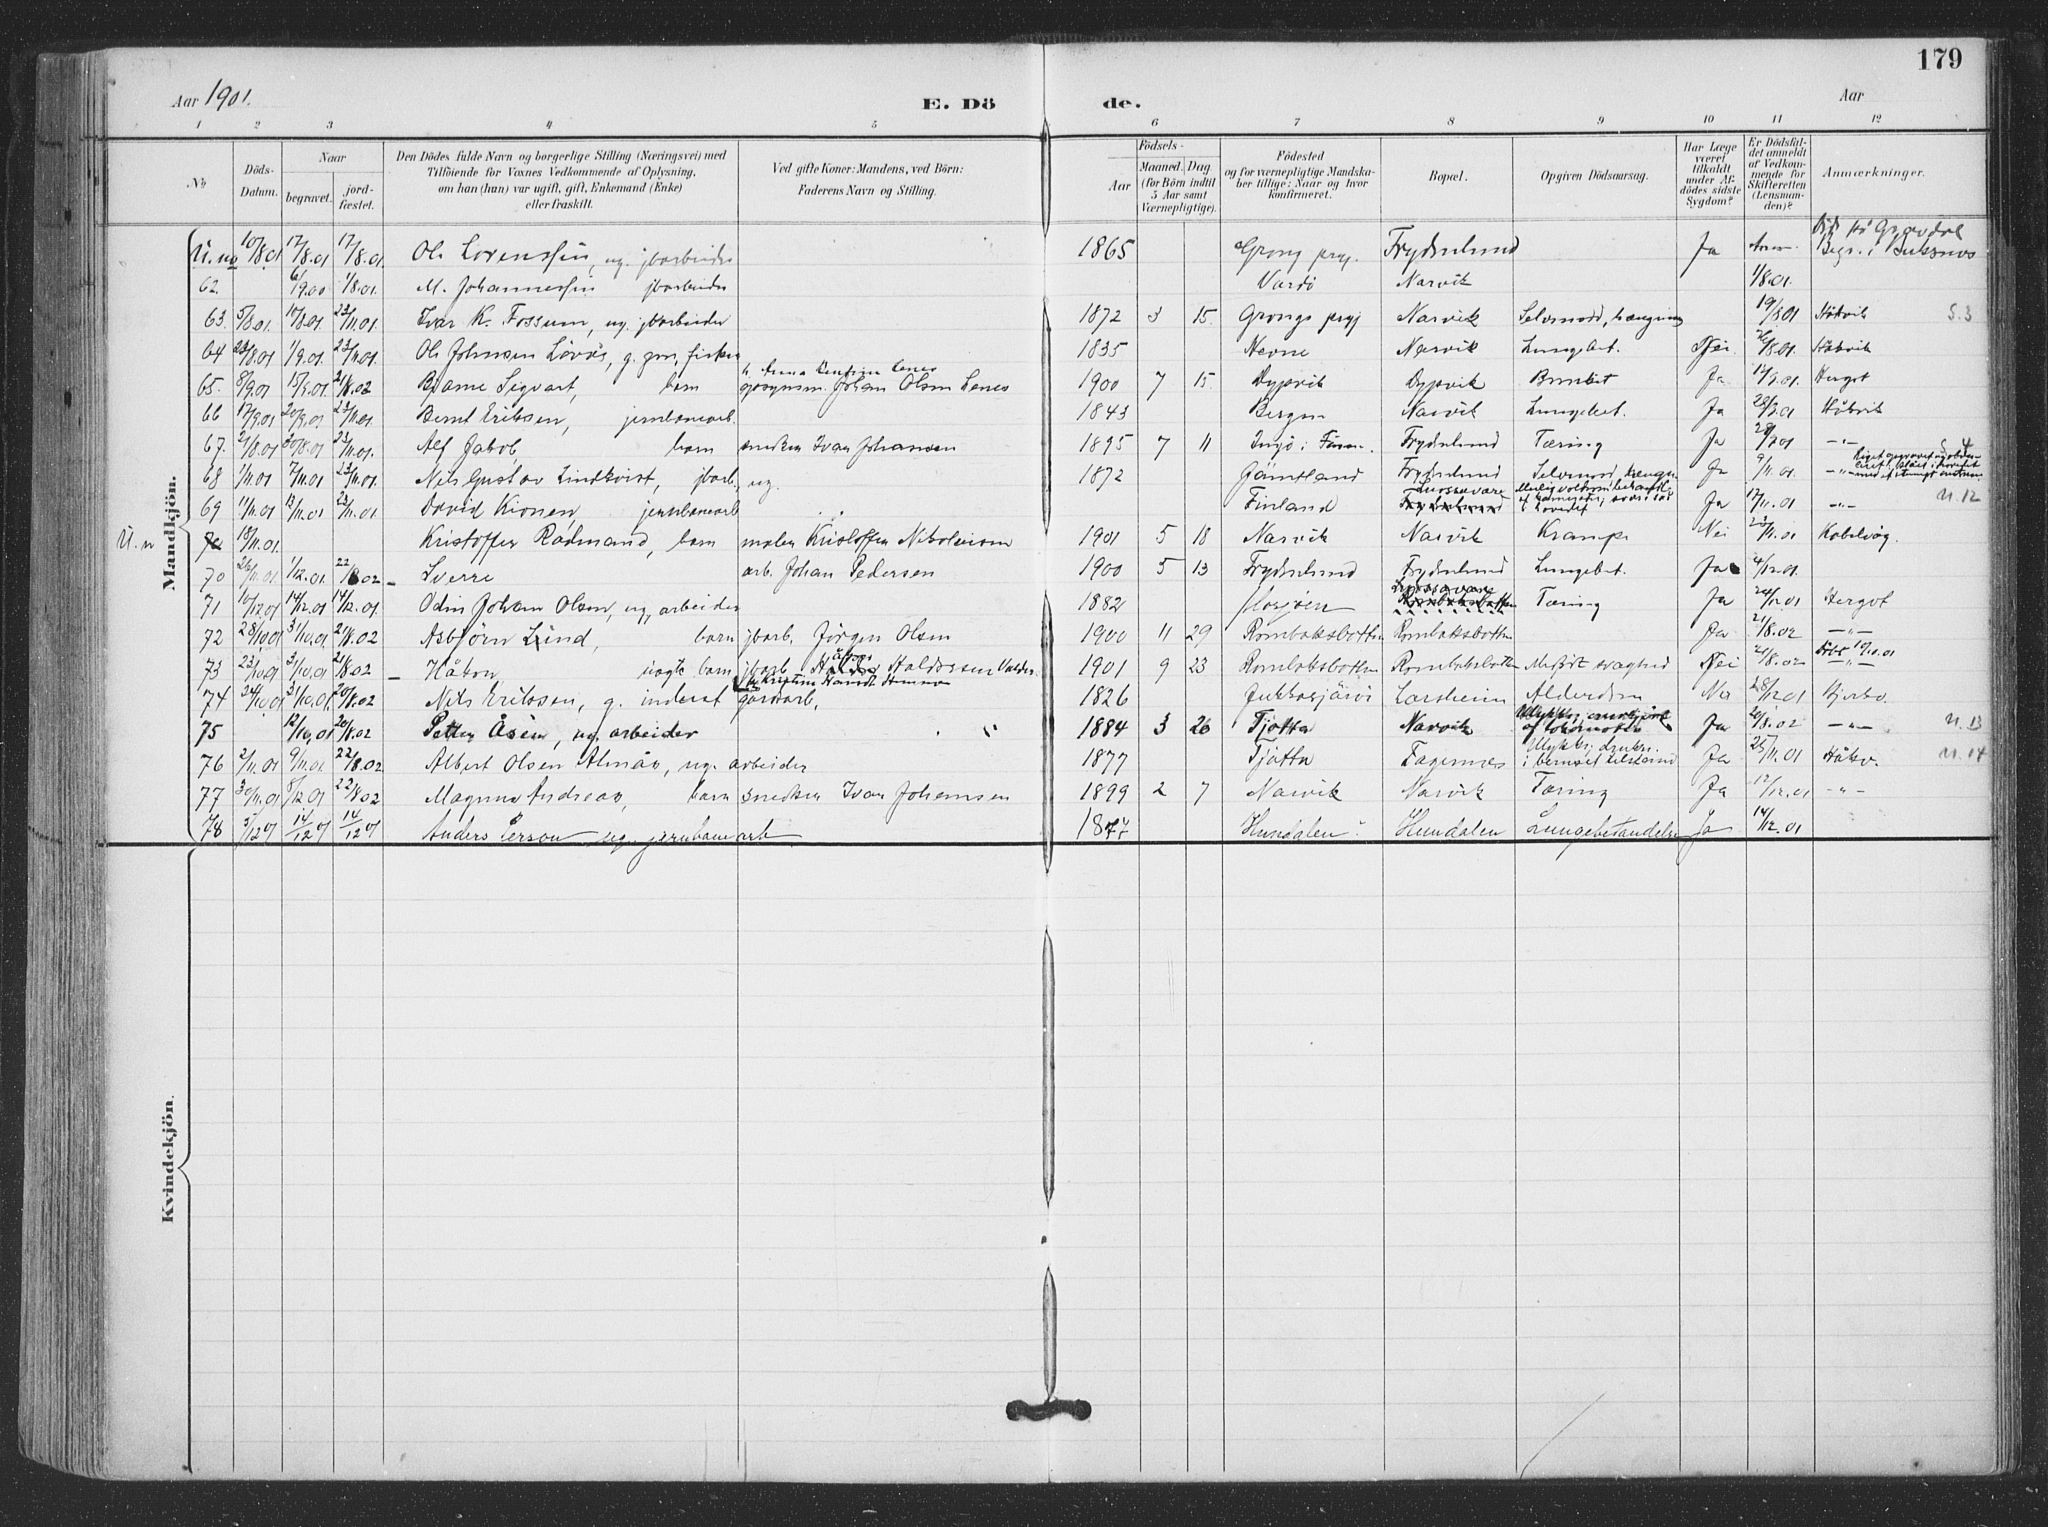 179
Aar 1901.
E. Dö
de.
Aar
1 2 3 4 5 6 7 8 9 10 11 12
No
Döds-Datum.
Naar
begravet.
jord-fæstet.
Den Dödes fulde Navn og borgerlige Stilling (Næringsvei) med
Tilföiende for Voxnes Vedkommende af Oplysning,
om han (hun) var ugift, gift, Enkemand (Enke)
eller fraskilt.
Ved gifte Koner: Mandens, ved Börn:
Faderens Navn og Stilling.
Födsels-
Aar
Maaned. Dag.
(for Börn indtil
5 Aar samt
Værnepligtige).
Födested
og for værnepligtige Mandska-
ber tillige: Naar og hvor
konfirmeret.
Bopæl.
Opgiven Dödsaarsag.
Har Læge
været
tilkaldt
under Af-
dödes sidste
Sygdom?
Er Dödsfal-
det anmeldt
af Vedkom-
mende for
Skifteretten
(Lensman-
den)?
Anmærkninger.
Mandkjön.
U. no 10/8.01 17/8.01 17/8.01. Ole Lorenssen, ug. jbarbeider 1865 Grong prgj. Frydenlund Ja Begr. i
62. 6/9.00 1/8.01. M. Johannessen jbarbeider Vardö Narvik 1/8.01.
63. 5/8.01. 10/8.01. 23/11.01. Ivar K. Fossum, ug. jbarbeider 1872 3 15. Grongs prgj Narvik Selvmord, hængning 19/8.01 Håkvik S.3
64 28/8.01 1/9.01. 23/11.01 Ole Johnsen Lövås, g. gm, fisker 1835 Hevne Narvik Lungebet. Nei 26/8.01. Håkvik
65. 8/9.01 15/9.01. 21/8.02 Bjarne Sigvart, barn Johan Olsen Lenes 1900 7 15. Dypvik Dypvik Ja Hergot
66 17/9.01 20/9.01 23/11.01. Bernt Eriksen, jernbanearb. 1843 Bergen Narvik Lungebet. Ja Håkvik
67. 21/8.01 30/8.01 23/11.01. Alf Jakob, barn snedker Ivar Johansen 1895 7 11 Frydenlund Tæring Ja -"-
68 1/11.01 7/11.01 23/11.01. Nils Gustav Lindkvist, jbarb, ug. 1872 Gämtland Frydenlund Selvmord Ja 9/11.01. -"- S. 4
69 11/11.01 13/11.01 23/11.01. David Kionen, jernbanearb Finland Ja 17/11.01 -"- U.12
U.n 18/11.01. Kristoffer Rödmand, barn maler Kristoffer Nikolaisen 1901 5 18 Narvik Narvik Krampe Nei 23/11.01 Kabelvåg.
70 26/11.01 1/12.01 22/8.02 – Sverre arb. Johan Pedersen 1900 5 13 Frydenlund Frydenlund Lungebet. Ja 4/12.01
71 10/12.01 14/12.01 14/12.01. Odin Johan Olsen, ug, arbeider 1882 Mosjöen Tæring Ja 24/12.01 Hergot
72 28/10.01 31/10.01 21/8.02 Asbjörn Lund, barn jbarb. Jörgen Olsen 1900 11 29 Rombaksbotten Rombaksbotten Ja 21/8.02 -"-
73 23/10.01 31/10.01 21/8.02 – Håkon uægte barn jbarb. Haldorsen 1901 9 23 Rombaksbotten Rombaksbotten Medfödt svaghed Nei 21/8.02 -"-
74 24/10.01 31/10.01. 20/8.02 Nils Eriksen, g. inderst gårdarb. 1826 Jukkasjärvi Larsheim Alderdom Nei 28/12.01 Bjerkv.
75 12/10.01 20/8.02 Petter Åsen, ug. arbeider " 1884 3 26 Tjotta Narvik af lokomotiv Ja 20/8.02 -"- U.13
76 2/11.01 9/11.01. 22/8.02. Albert Olsen Almås, ug. arbeider 1877 Tjotta Fagernes Ulykke, Ja 25/11.01 Håkv. U.14
77 30/11.01 8/12.01 22/8.02 Magnus Andreas, barn snedker Ivar Johansen 1899 2 7 Narvik Narvik Tæring Ja 12/12.01 -"-
78 5/12.01 14/12.01 14/12.01 Anders Person ug. jernbanearb 1877 Hundalen Hundalen Lungebetændelse Ja 14/12.01
Kvindekjön.